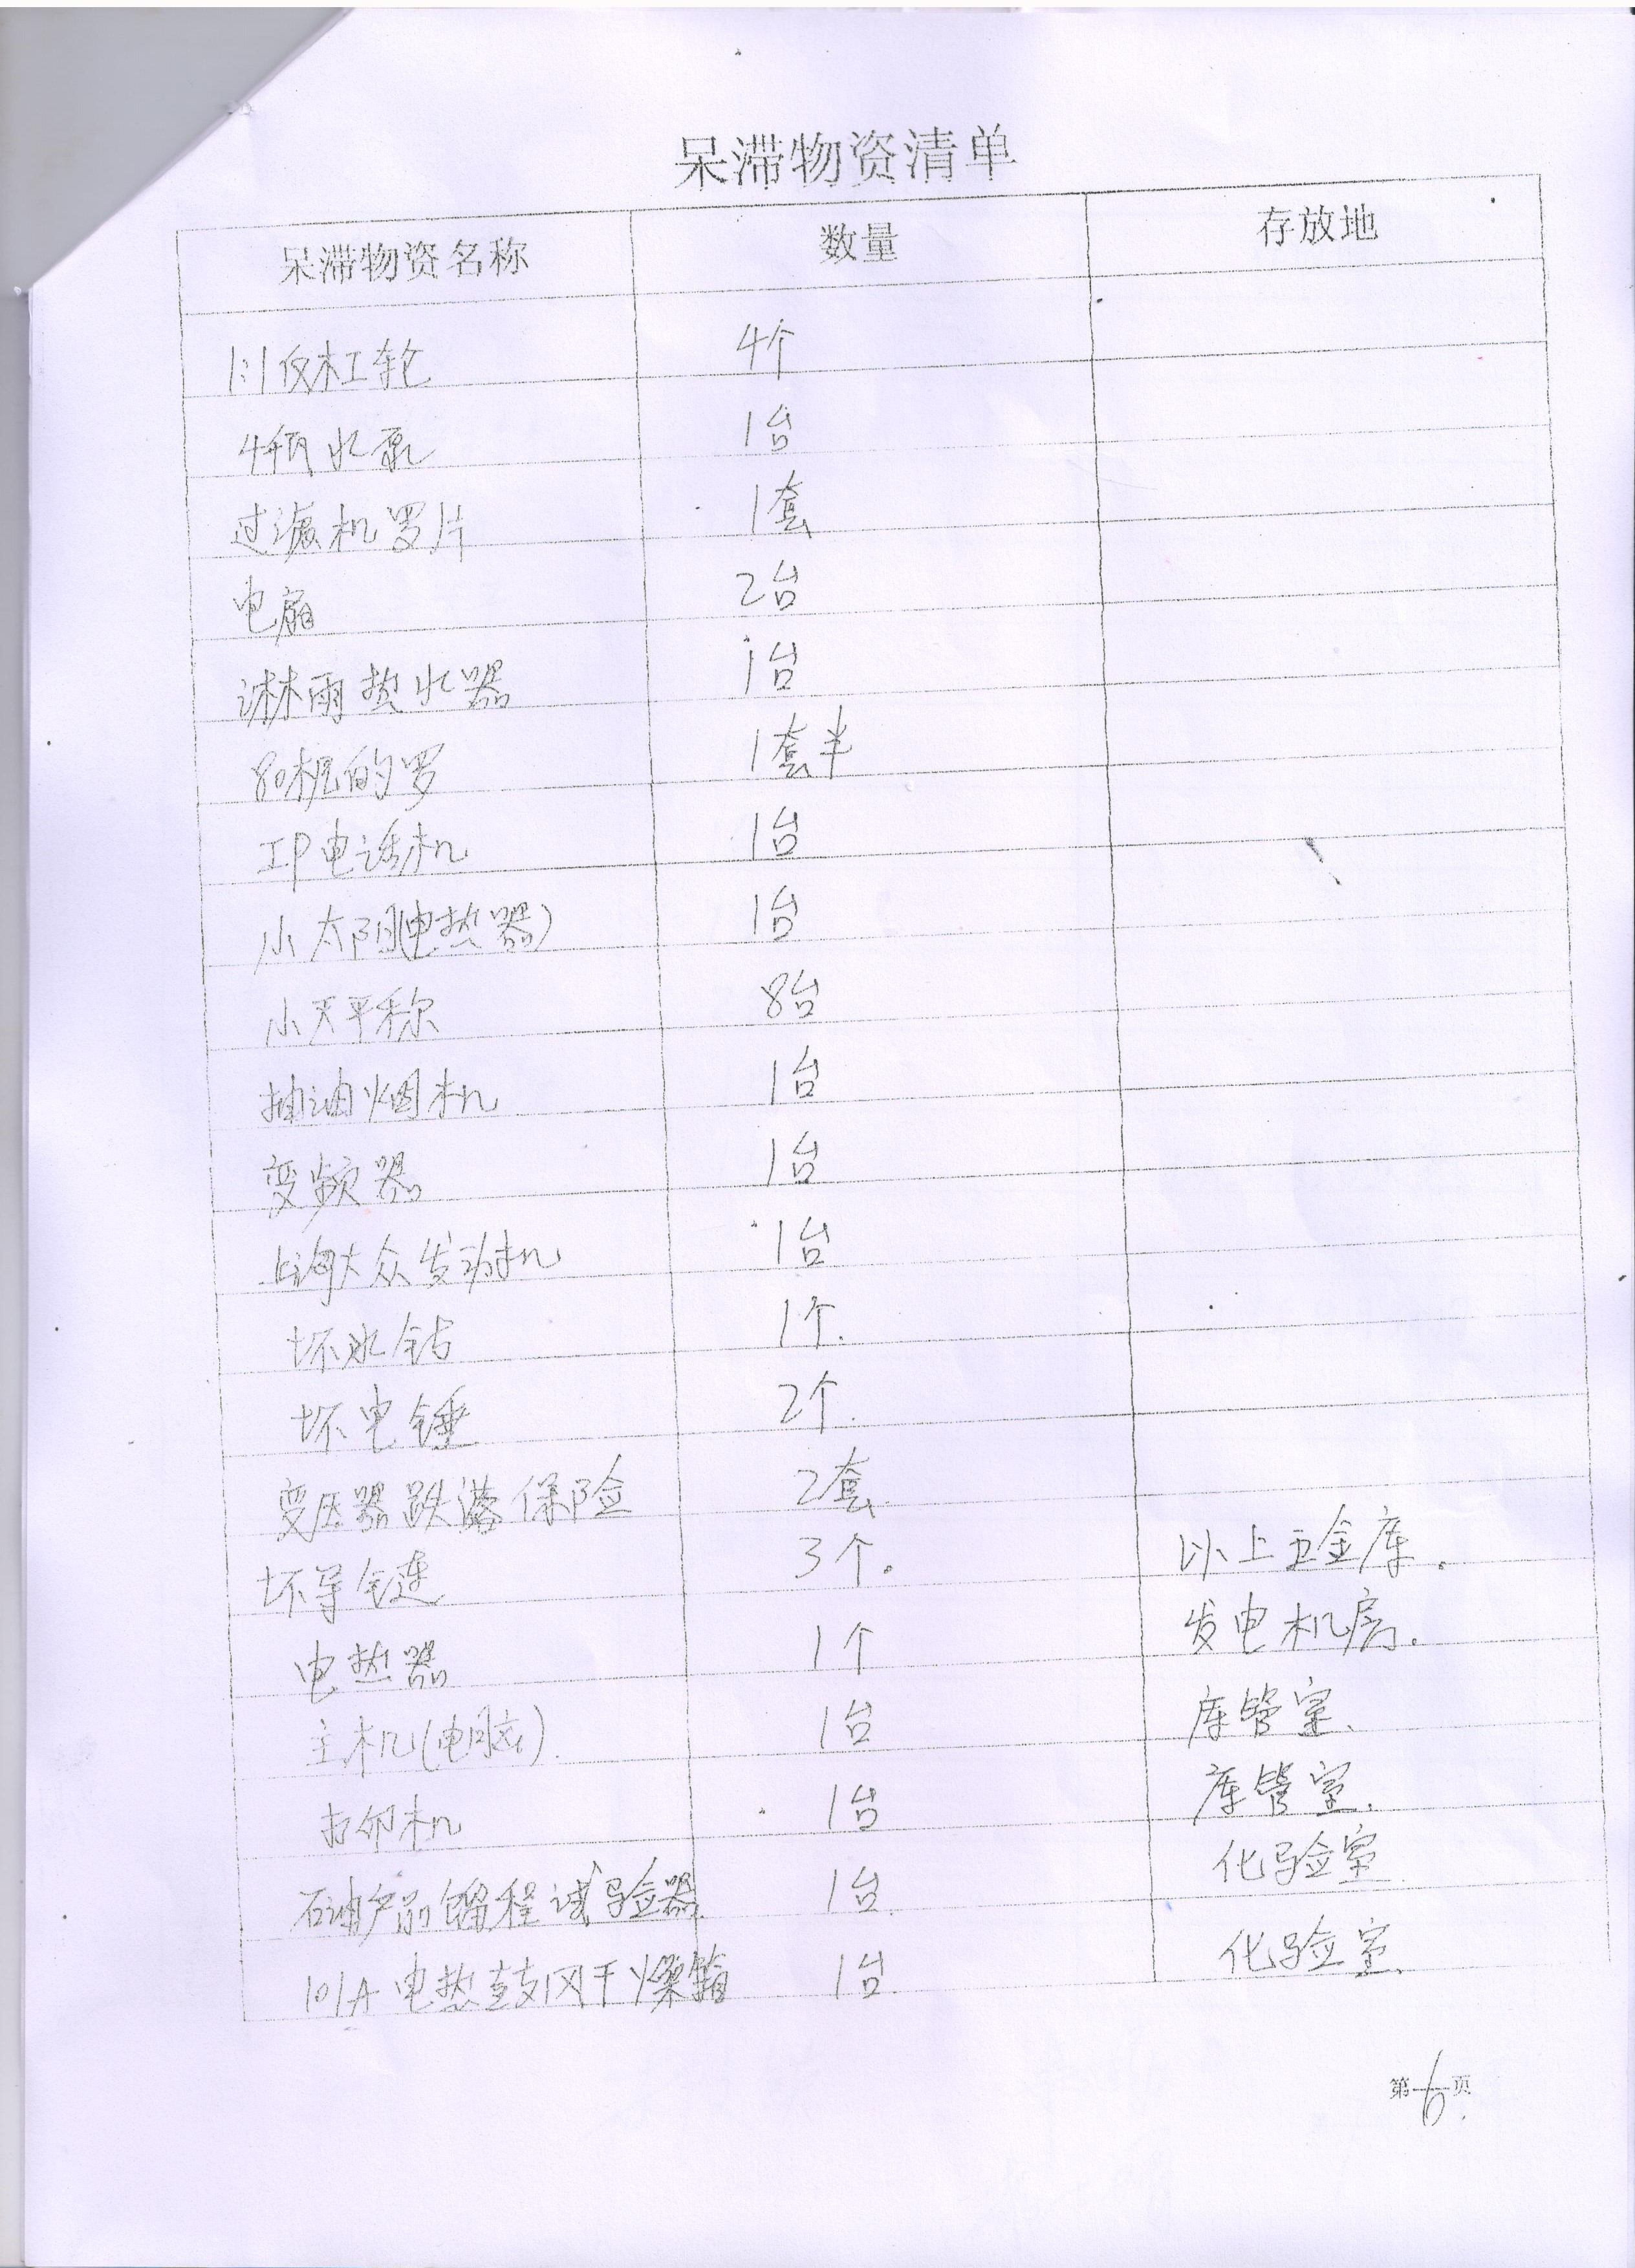 呆滞物资清单
呆滞物资名称 数量 存放地
1:1仪杠轮 4个
4辆水泵 1台
过滤机罗片 1套
电扇 2台
淋雨热水器 1台
80机的罗 1套半
IP电话机 1台
小太阳(电热器) 1台
小天平称 8台
抽油烟机 1台
变频器 1台
上海大众发动机 1台
坏水钻 1个.
坏电锤 2个.
变压器跌落保险 2套.
坏导链 3个。 以上五金库。
电热器 1个 发电机房.
主机(电脑) 1台 库管室、
打印机 1台 库管室.
石油产品馏程试验器 1台. 化验室
101A电热鼓风干燥箱 1台. 化验室.
第6页